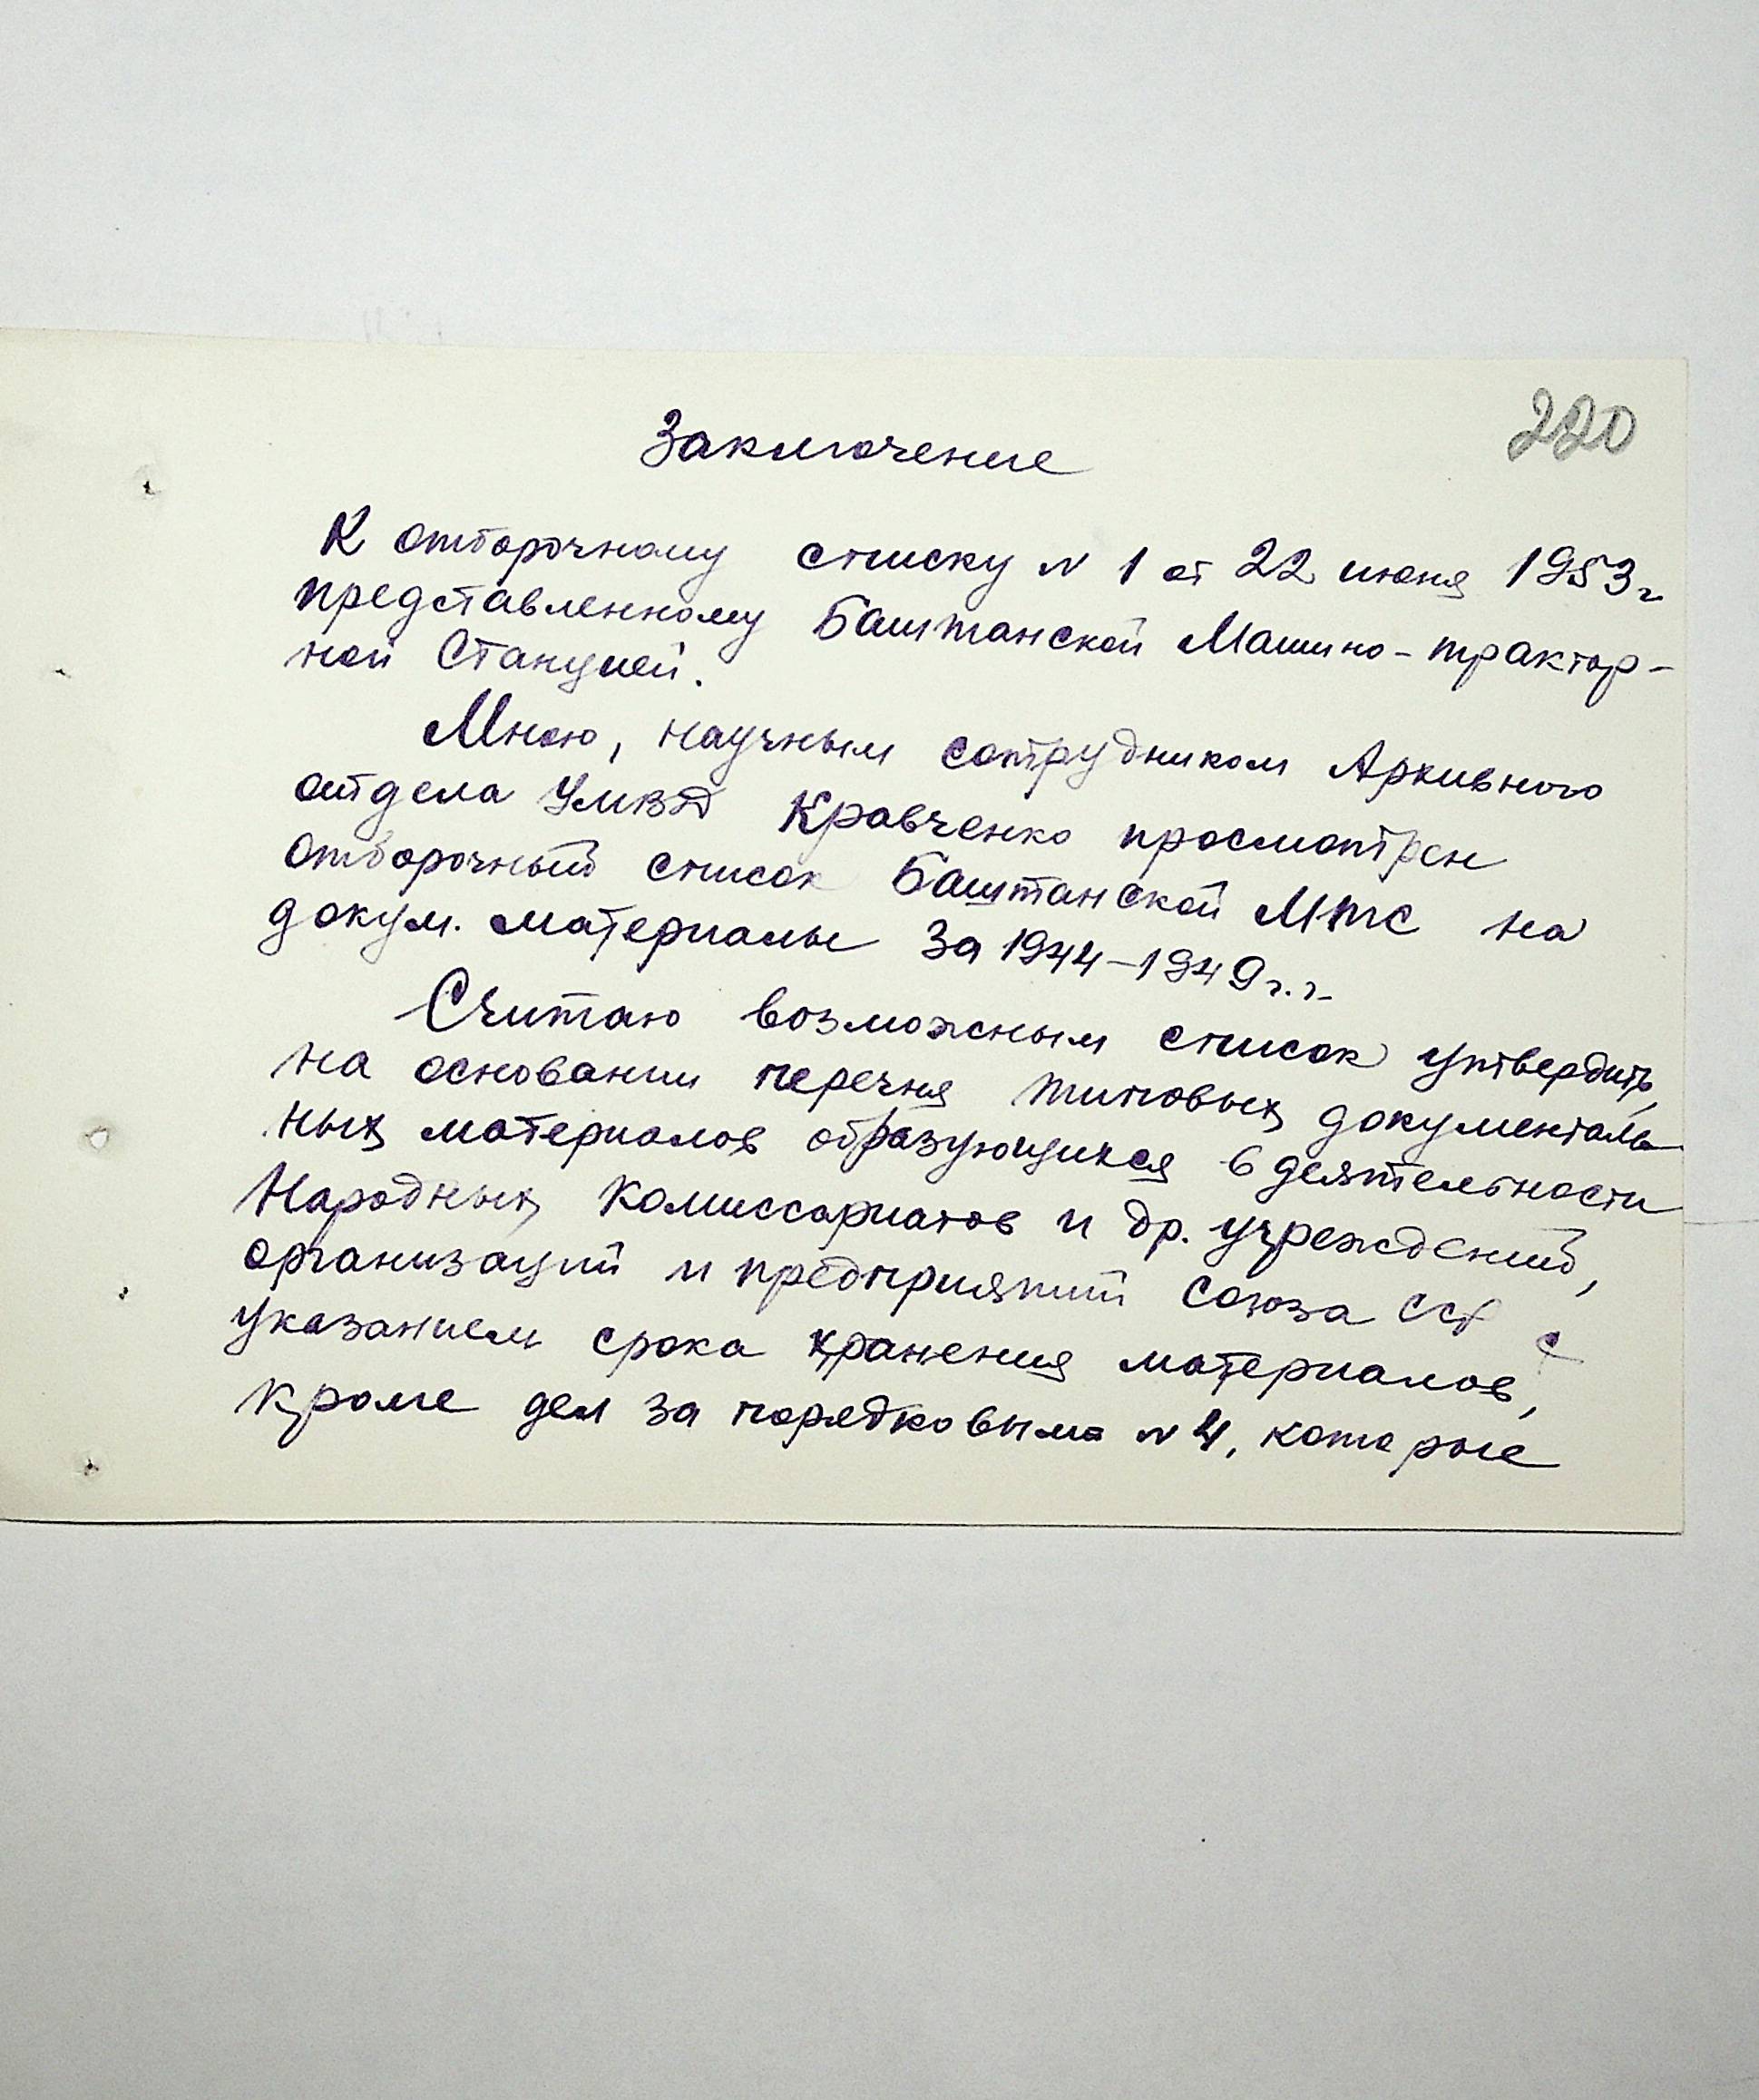 220
Заключение
К отборочному списку N 1 от 22 июня 1953 г
представленному Баштанской Машино-трактор-
ной Станцией.
Мною, научным сотрудником Архивного
отдела УМВД Кравченко просмотрен
отборочный список Баштанской МТС на
докум. материалы за 1944-1949 г.г.
Считаю возможным список утвердить,
на основании перечня типовых документаль-
ных материалов образующихся в деятельности
Народных Комиссариатов и др. учреждений,
организаций и предприятий Союза ССР с
указанием срока хранения материалов,
кроме дел за порядковым N 4, которые